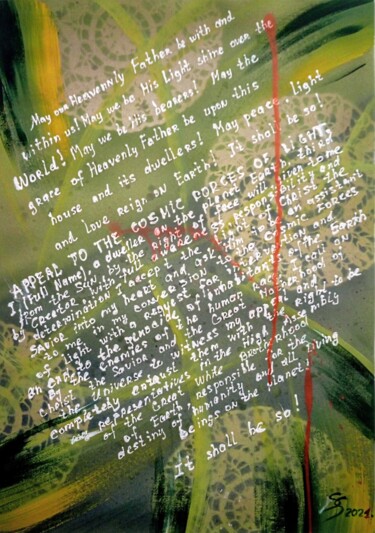 May our Heavennly Father be with and
within us! May we be His Light shine over the
World! May we be His bearers! May the
grace of Heavenly Father be upon this
house and its dwellers! May peace, light
and love reign on Earth! It shall be so!
APPEAL TO THE COSMIC FORCES OF LIGHT
I (full Name), a dweller on the planet Earth, third
from the Sun, by the right of given to me
by Creator with full awareness, responsibility and
determination I accept the Light of Christ the
Savior into my heart and Cosmic Forces
of Light with a request for assistant
to me in my conversion
an end to the genocide of humanity on the Earth
by the enemies of human
Christ the Savior and the Great Brotherhood of
the Universe to witness my appeal and
completely entrust them the right to be
representatives in the High Assembly
of the Great White Brotherhood
of Earth, responsible for the
destiny of humanity and all living
beings on the planet!
It shall be so!
2021.